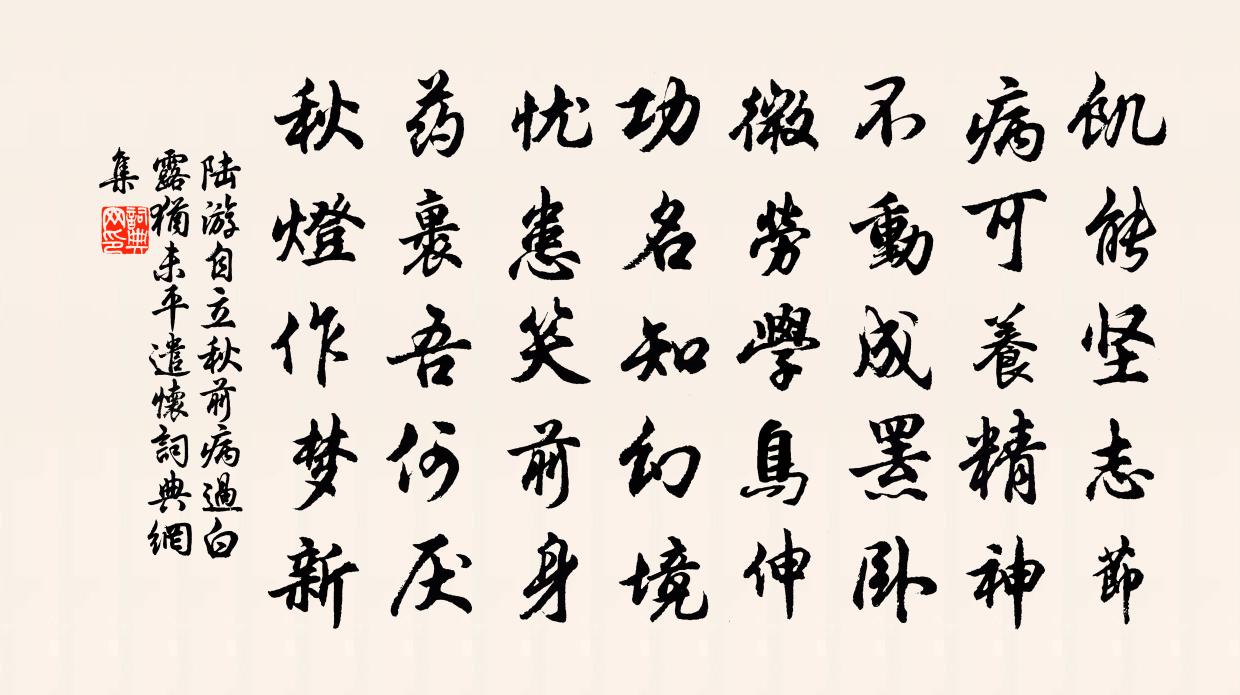 飢能坚志節
病可養精神
不動成罴卧
微勞學鳥伸
功名知幻境
忧患笑前身
药裹吾何厌
秋燈作梦新
陆游自立秋前病過白
露猶未平遣懷詞典網
集
詞典网印